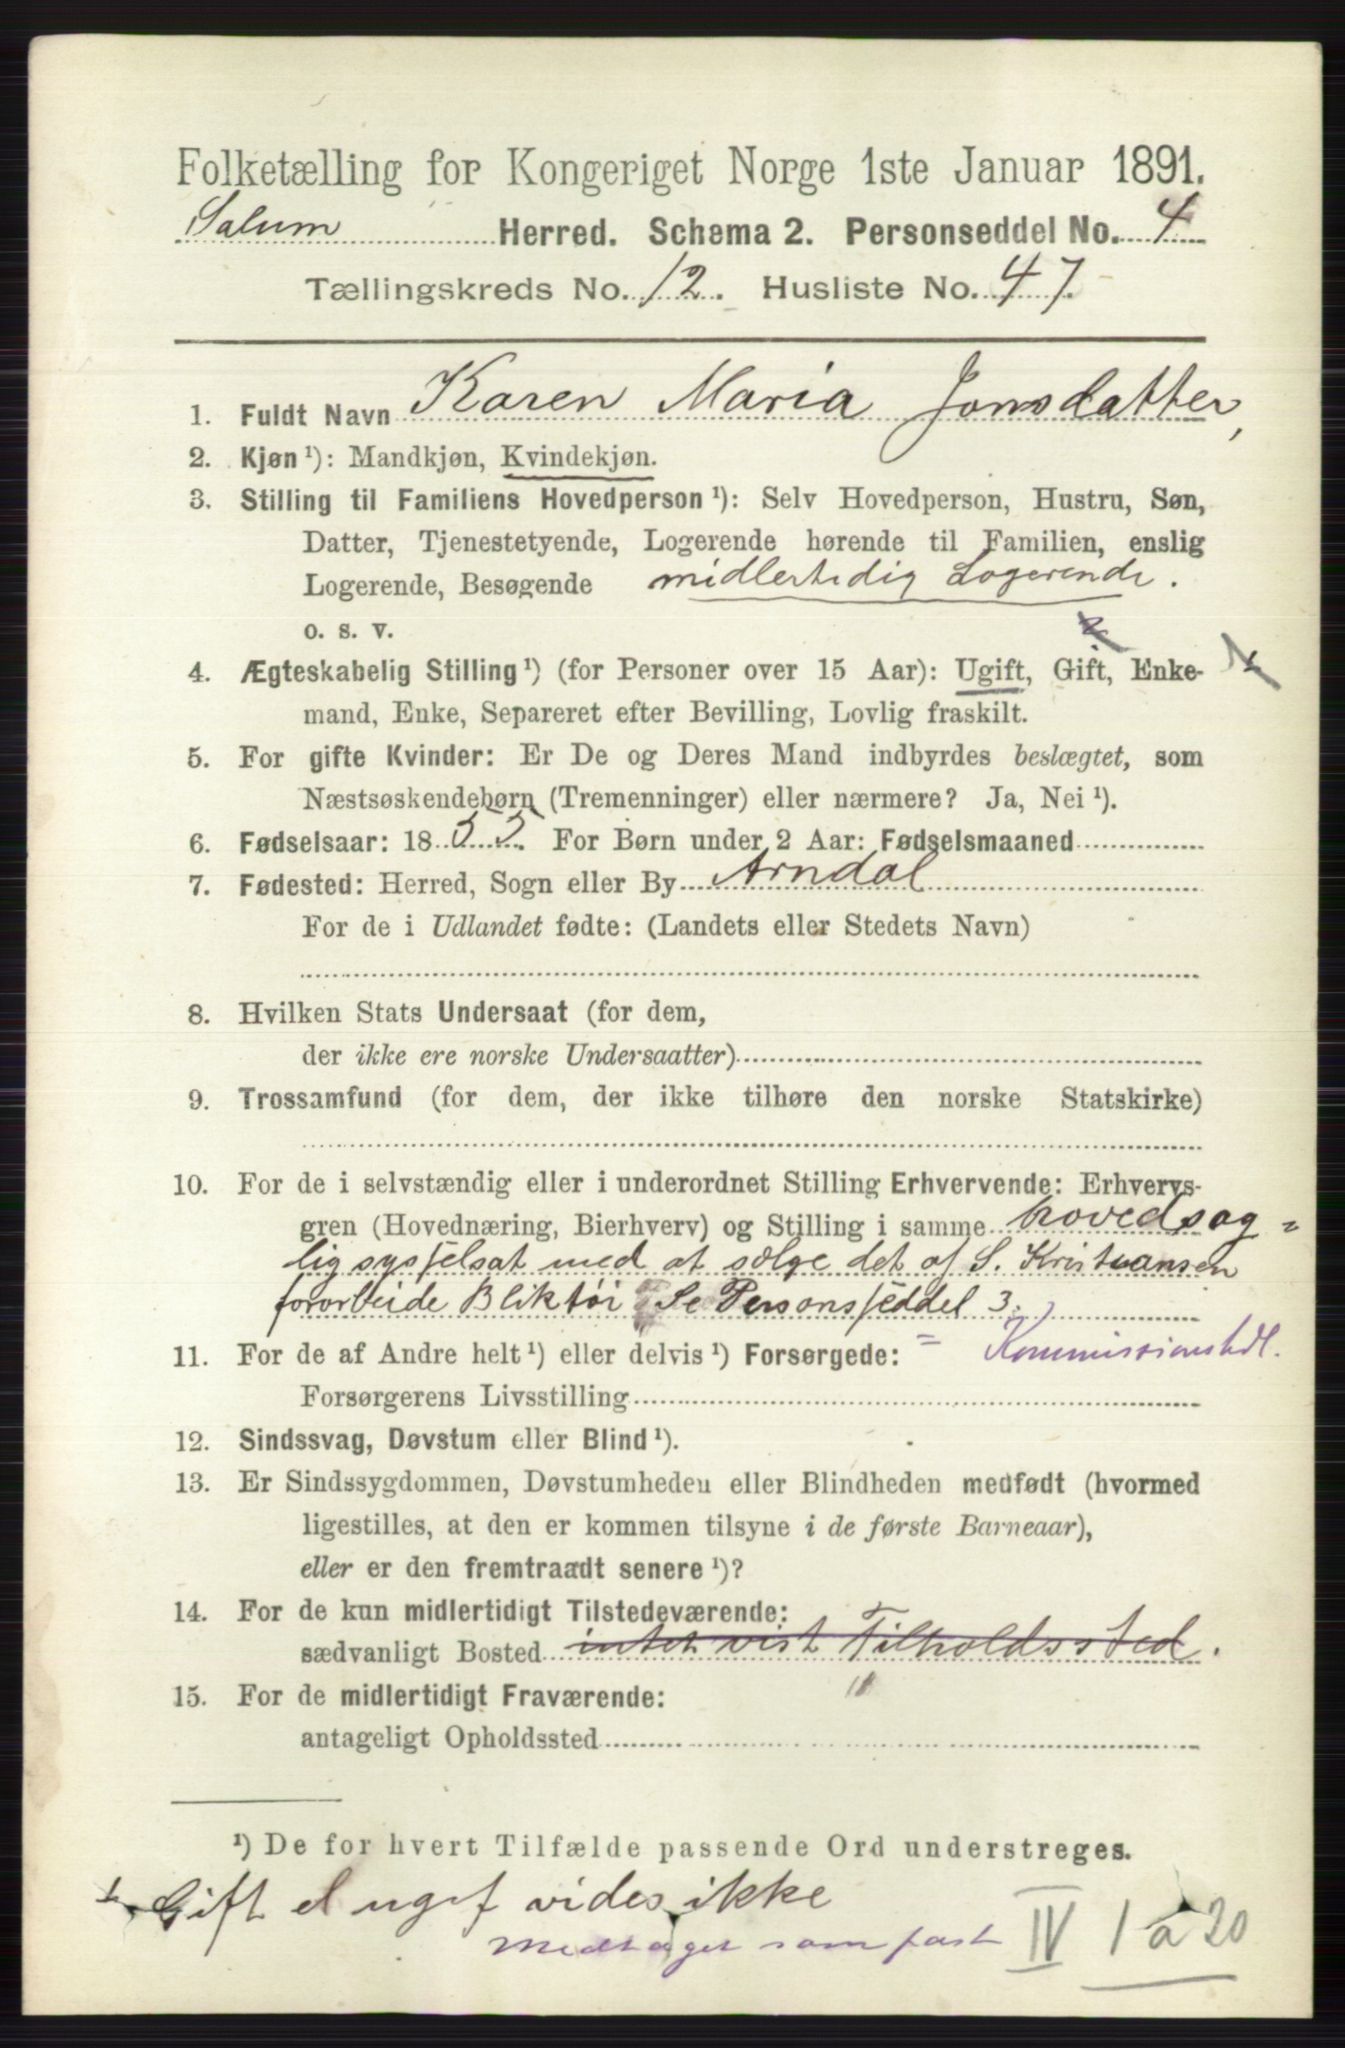 Folketælling for Kongeriget Norge 1ste Januar 1891.
Solum Herred. Schema 2. Personseddel No. 4
Tællingskreds No. 12. Husliste No. 47.
1. Fuldt Navn Karen Maria Jonsdatter,
2. Kjøn ¹): Mandkjøn, Kvindekjøn.
3. Stilling til Familiens Hovedperson ¹): Selv Hovedperson, Hustru, Søn,
Datter, Tjenestetyende, Logerende hørende til Familien, enslig
Logerende, Besøgende midlertidig Logerende.
o. s. v.
4. Ægteskabelig Stilling ¹) (for Personer over 15 Aar): Ugift, Gift, Enke-
mand, Enke, Separeret efter Bevilling, Lovlig fraskilt.
5. For gifte Kvinder: Er De og Deres Mand indbyrdes beslægtet, som
Næstsøskendebørn (Tremenninger) eller nærmere? Ja, Nei ¹).
6. Fødselsaar: 1855. For Børn under 2 Aar: Fødselsmaaned
7. Fødested: Herred, Sogn eller By Arndal
For de i Udlandet fødte: (Landets eller Stedets Navn)
8. Hvilken Stats Undersaat (for dem,
der ikke ere norske Undersaatter)
9. Trossamfund (for dem, der ikke tilhøre den norske Statskirke)
10. For de i selvstændig eller i underordnet Stilling Erhvervende: Erhvervs-
gren (Hovednæring, Bierhverv) og Stilling i samme hovedsag=
lig sysselsat med at sælge det af S. Kristiansen
forarbeide Bliktøi Se Personsseddel 3.
11. For de af Andre helt ¹) eller delvis ¹) Forsørgede: = Kommissionshdl.
Forsørgerens Livsstilling
12. Sindssvag, Døvstum eller Blind ¹).
13. Er Sindssygdommen, Døvstumheden eller Blindheden medfødt (hvormed
ligestilles, at den er kommen tilsyne i de første Barneaar),
eller er den fremtraadt senere ¹)?
14. For de kun midlertidigt Tilstedeværende:
sædvanligt Bosted intet vist Tilholdssted.
15. For de midlertidigt Fraværende:
antageligt Opholdssted
¹) De for hvert Tilfælde passende Ord understreges.
Gift el ugif vides ikke
Medtaget som fast IV 1 à 20